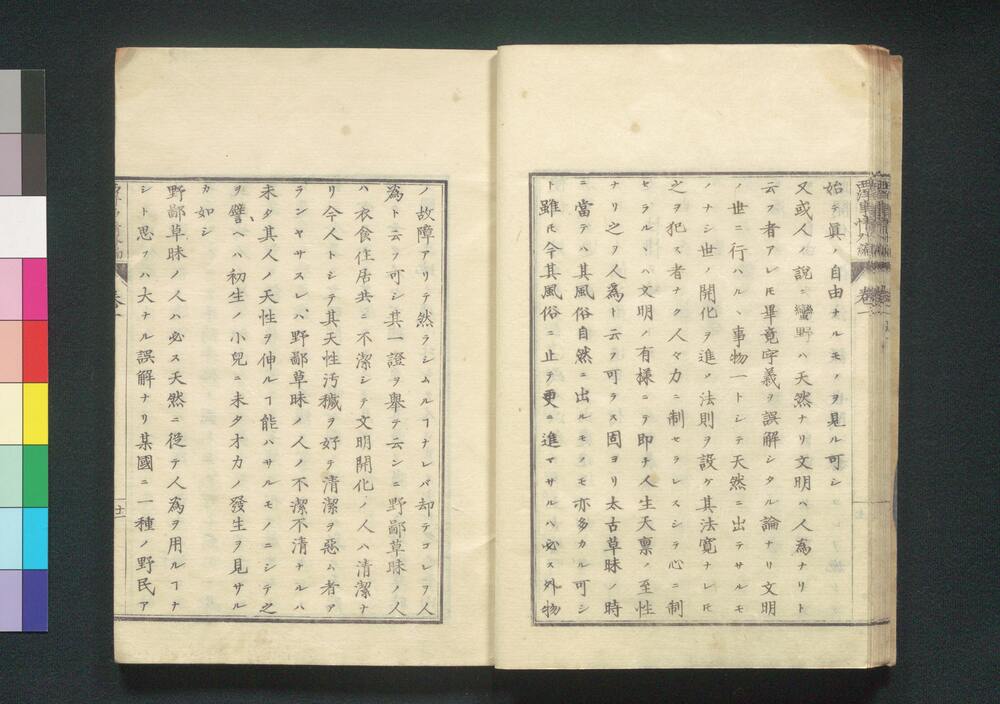 始テ眞ノ自由ナルモノヲ見ル可シ
又或人ノ説ニ蠻野ハ天然ナリ文明ハ人為ナリト
云フ者アレ𪜈畢竟字義ヲ誤解シタル論ナリ文明
ノ世ニ行ハルヽ事物一トシテ天然ニ出テサルモ
ノナシ世ノ開化ヲ進メ法則ヲ設ケ其法寛ナレ𪜈
之ヲ犯ス者ナク人々力ニ制セラレスシテ心ニ制
セラルヽハ文明ノ有様ニテ即チ人生天禀ノ至性
ナリ之ヲ人為ト云フ可ラス固ヨリ太古草昧ノ時
ニ當テハ其風俗自然ニ出ルモノモ亦多カル可シ
ト雖𪜈今其風俗ニ止テ更ニ進マサルハ必ス外物
ノ故障アリテ然ラシムルヿナレバ却テコレヲ人
為ト云フ可シ其一證ヲ舉テ云ンニ野鄙草昧ノ人
ハ衣食住居共ニ不潔シテ文明開化ノ人ハ清潔ナ
リ今人トシテ其天性汚穢ヲ好テ清潔ヲ惡ム者ア
ランヤサスレバ野鄙草昧ノ人ノ不潔不清ナルハ
未タ其人ノ天性ヲ伸ルヿ能ハサルモノニシテ之
ヲ譬ヘハ初生ノ小兒ニ未タオカノ發生ヲ見サル
カ如シ
野鄙草昧ノ人ハ必ス天然ニ從テ人為ヲ用ルヿナ
シト思フハ大ナル誤解ナリ某國ニ一種ノ野民ア
廿